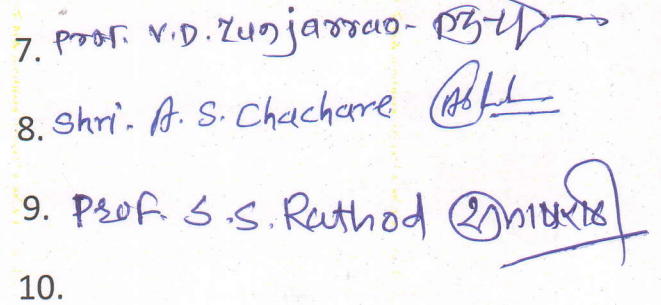 7. Prof. V.D. Zunjarrao-
8. Shri. A. S. Chachare
9. Prof. S.S. Rathod
10.